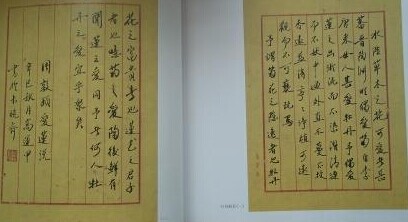 水陸草木之花可愛者甚
蕃晉陶淵明獨愛菊自李
唐來世人甚愛牡丹予獨愛
蓮之出淤泥而不染濯清漣
而不妖中通外直不蔓不枝
香遠益清亭亭淨植可遠
觀而不可褻玩焉
予謂菊花之隱逸者也牡丹
花之富貴者也蓮花之君子
者也噫菊之愛陶後鮮有
聞蓮之愛同予者何人牡
丹之愛宜乎衆矣
周敦頤愛蓮說
辛巳秋月
書於